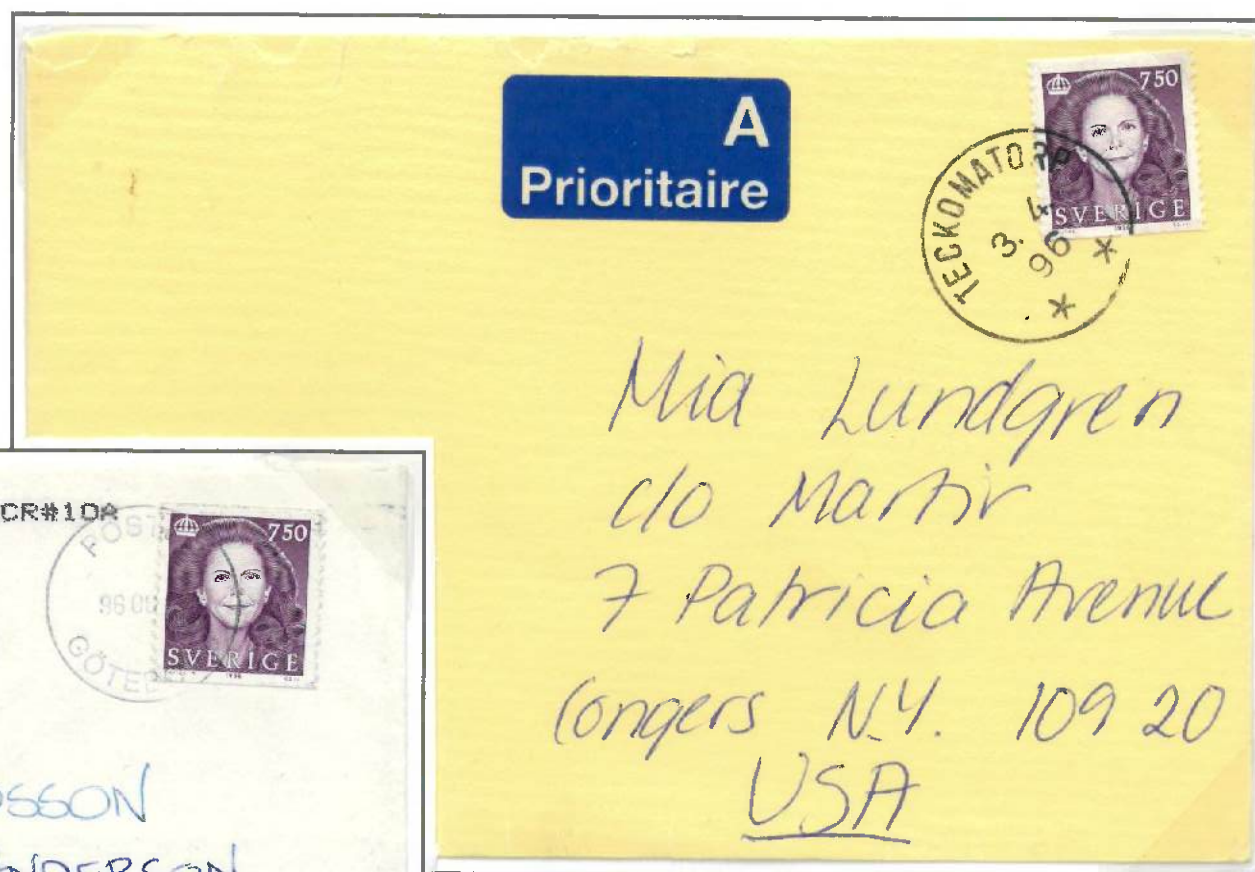 A
Prioritaire
750
SVERIGE
TECKOMATORP
3. 4
96
Mia Lundgren
c/o Martir
7 Patricia Avenue
Congers N.Y. 109 20
USA
CR#10A
750
SVERIGE
1996
POST
96 01
GÖTEB
OSSON
NDERSON